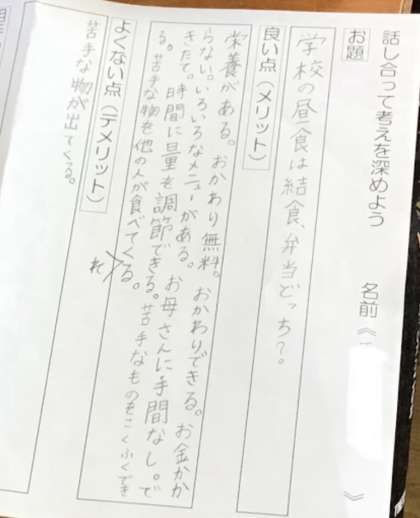 話し合って考えを深めよう 名前《 》
お題
学校の昼食は結食、弁当どっち?。
良い点(メリット)
栄養がある。おかわり無料。おかわりできる。お金かか
らない。いろいろなメニューがある。お母さんに手間なし。で
きたて。時間に量も調節できる。苦手なものもこくふくでき
る。苦手な物を他の人が食べてくれる。
よくない点(デメリット)
苦手な物が出てくる。